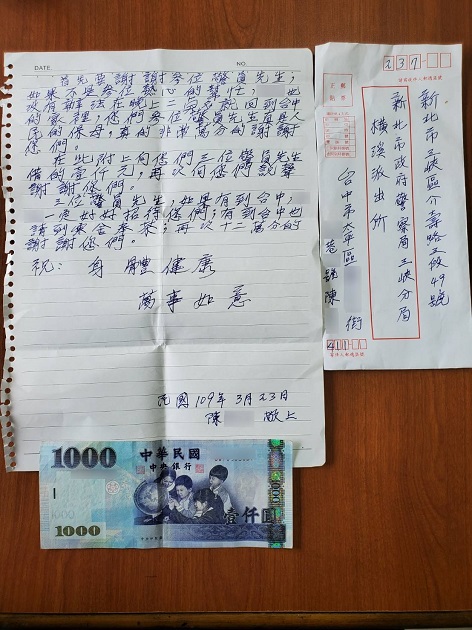 DATE:
NO.
首先要謝謝參位警員先生;
如果不是參位熱心的幫忙,
也
沒有辦法在晚上二點多就回到台中
的家裡,你們參位警員先生真是人
民的保母,真的非常萬分的謝謝
您們。
在此附上向你們三位警員先生
借的壹仟元,再次向你們說聲
謝謝您們。
三位警員先生,如果有到台中,
一定好好招待您們;有到台中也
請到來
再次十二萬分的
謝謝您們。
祝:身體健康
萬事如意
民國109年3月23日
陳
敬上
237
新北市三峽區介壽路三段49號
新北市政府警察局三峽分局
橫溪派出所
台中市太平區
街
巷
號陳
411
1000
中華民國
中央銀行
1000
壹仟圓